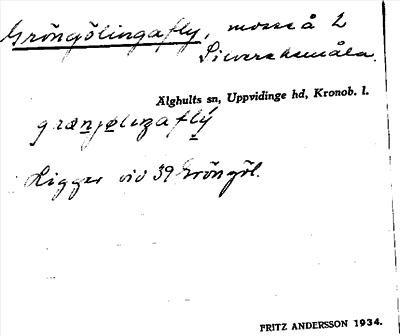 Gröngölingafly, mosse å 2
Siversksmåla.
Älghults sn, Uppvidinge hd, Kronob. l.
Ligger vid 39 Gröngöl.
FRITZ ANDERSSON 1934.